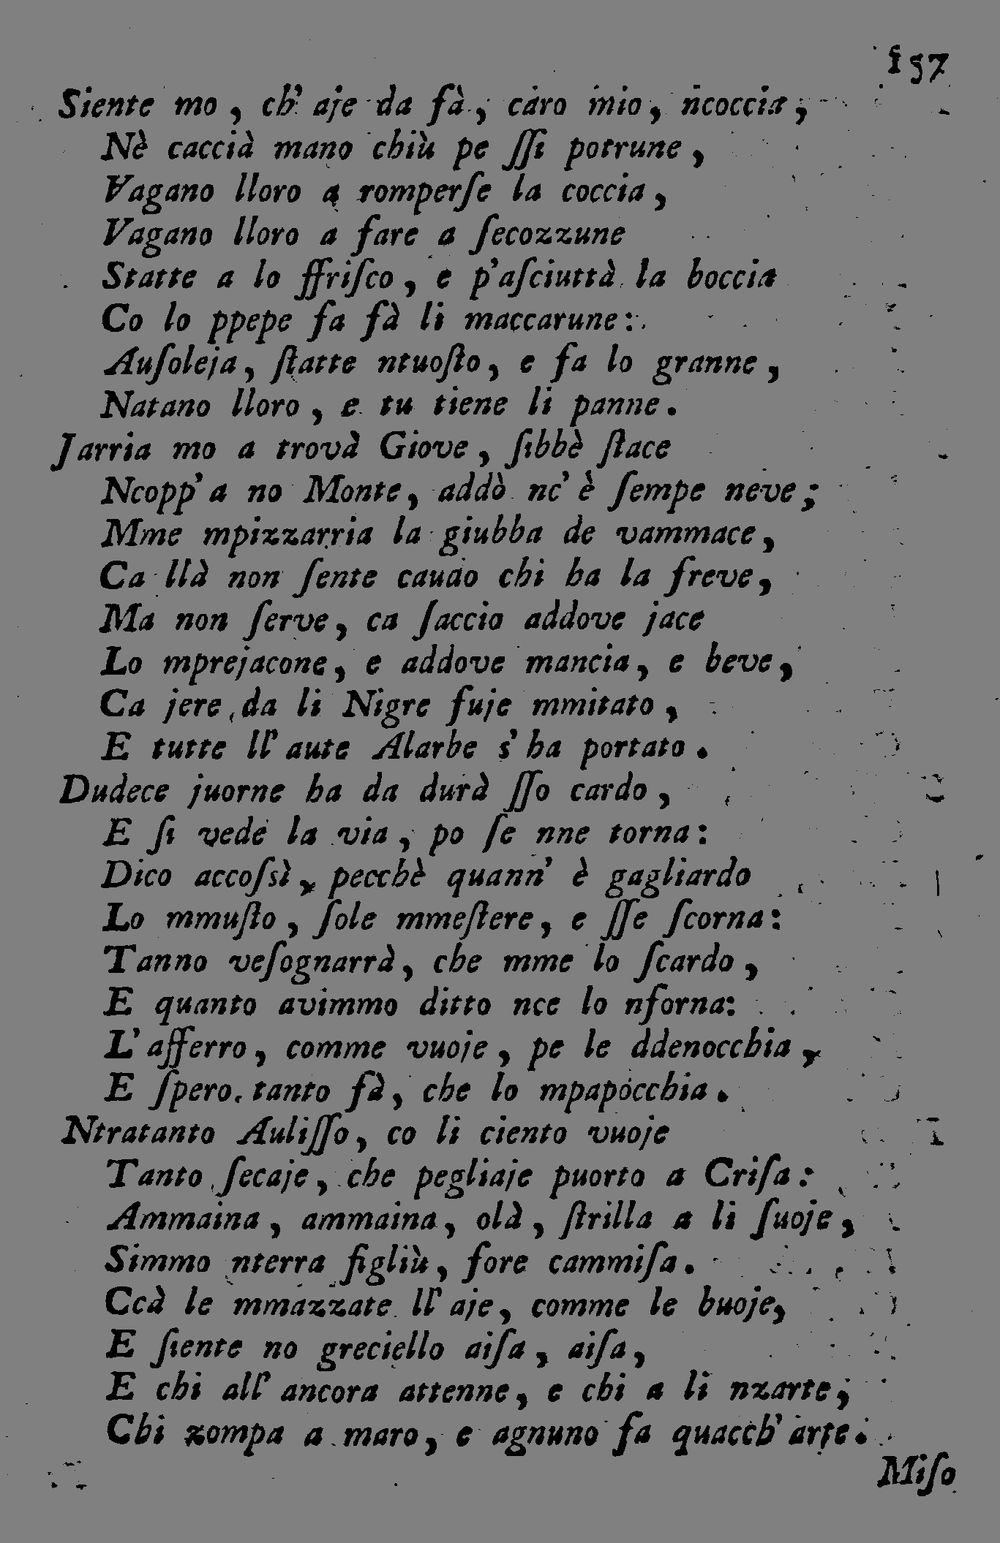 157
Siente mo, ch' aje da fà, caro mio, ncoccia,
Nè caccià mano chiù pe ſſi potrune,
Vagano lloro a romperſe la coccia,
Vagano lloro a fare a ſecozzune
Statte a lo ffriſco, e p'aſciuttà la boccia
Co lo ppepe fa fà li maccarune:
Auſoleja, ſtatte ntuoſto, e fa lo granne,
Natano lloro, e tu tiene li panne.
Jarria mo a trovà Giove, ſibbè ſtace
Ncopp' a no Monte, addò nc' è ſempe neve;
Mme mpizzarria la giubba de vammace,
Ca llà non ſente caudo chi ha la freve,
Ma non ſerve, ca ſaccio addove jace
Lo mprejacone, e addove mancia, e beve,
Ca jere da li Nigre fuje mmitato,
E tutte ll' aute Alarbe s' ha portato.
Dudece juorne ha da durà ſſo cardo,
E ſi vede la via, po ſe nne torna:
Dico accoſsì, pecchè quann' è gagliardo
Lo mmuſto, ſole mmeſtere, e ſſe ſcorna:
Tanno veſognarrà, che mme lo ſcardo,
E quanto avimmo ditto nce lo nforna:
L' afferro, comme vuoje, pe le ddenocchia,
E ſpero tanto fà, che lo mpapocchia.
Ntratanto Auliſſo, co li ciento vuoje
Tanto ſecaje, che pegliaje puorto a Criſa:
Ammaina, ammaina, olà, ſtrilla a li ſuoje,
Simmo nterra figliù, fore cammiſa.
Ccà le mmazzate ll' aje, comme le buoje,
E ſiente no greciello aiſa, aiſa,
E chi all' ancora attenne, e chi a li nzarte,
Chi zompa a maro, e agnuno fa quacch' arte.
Miſo